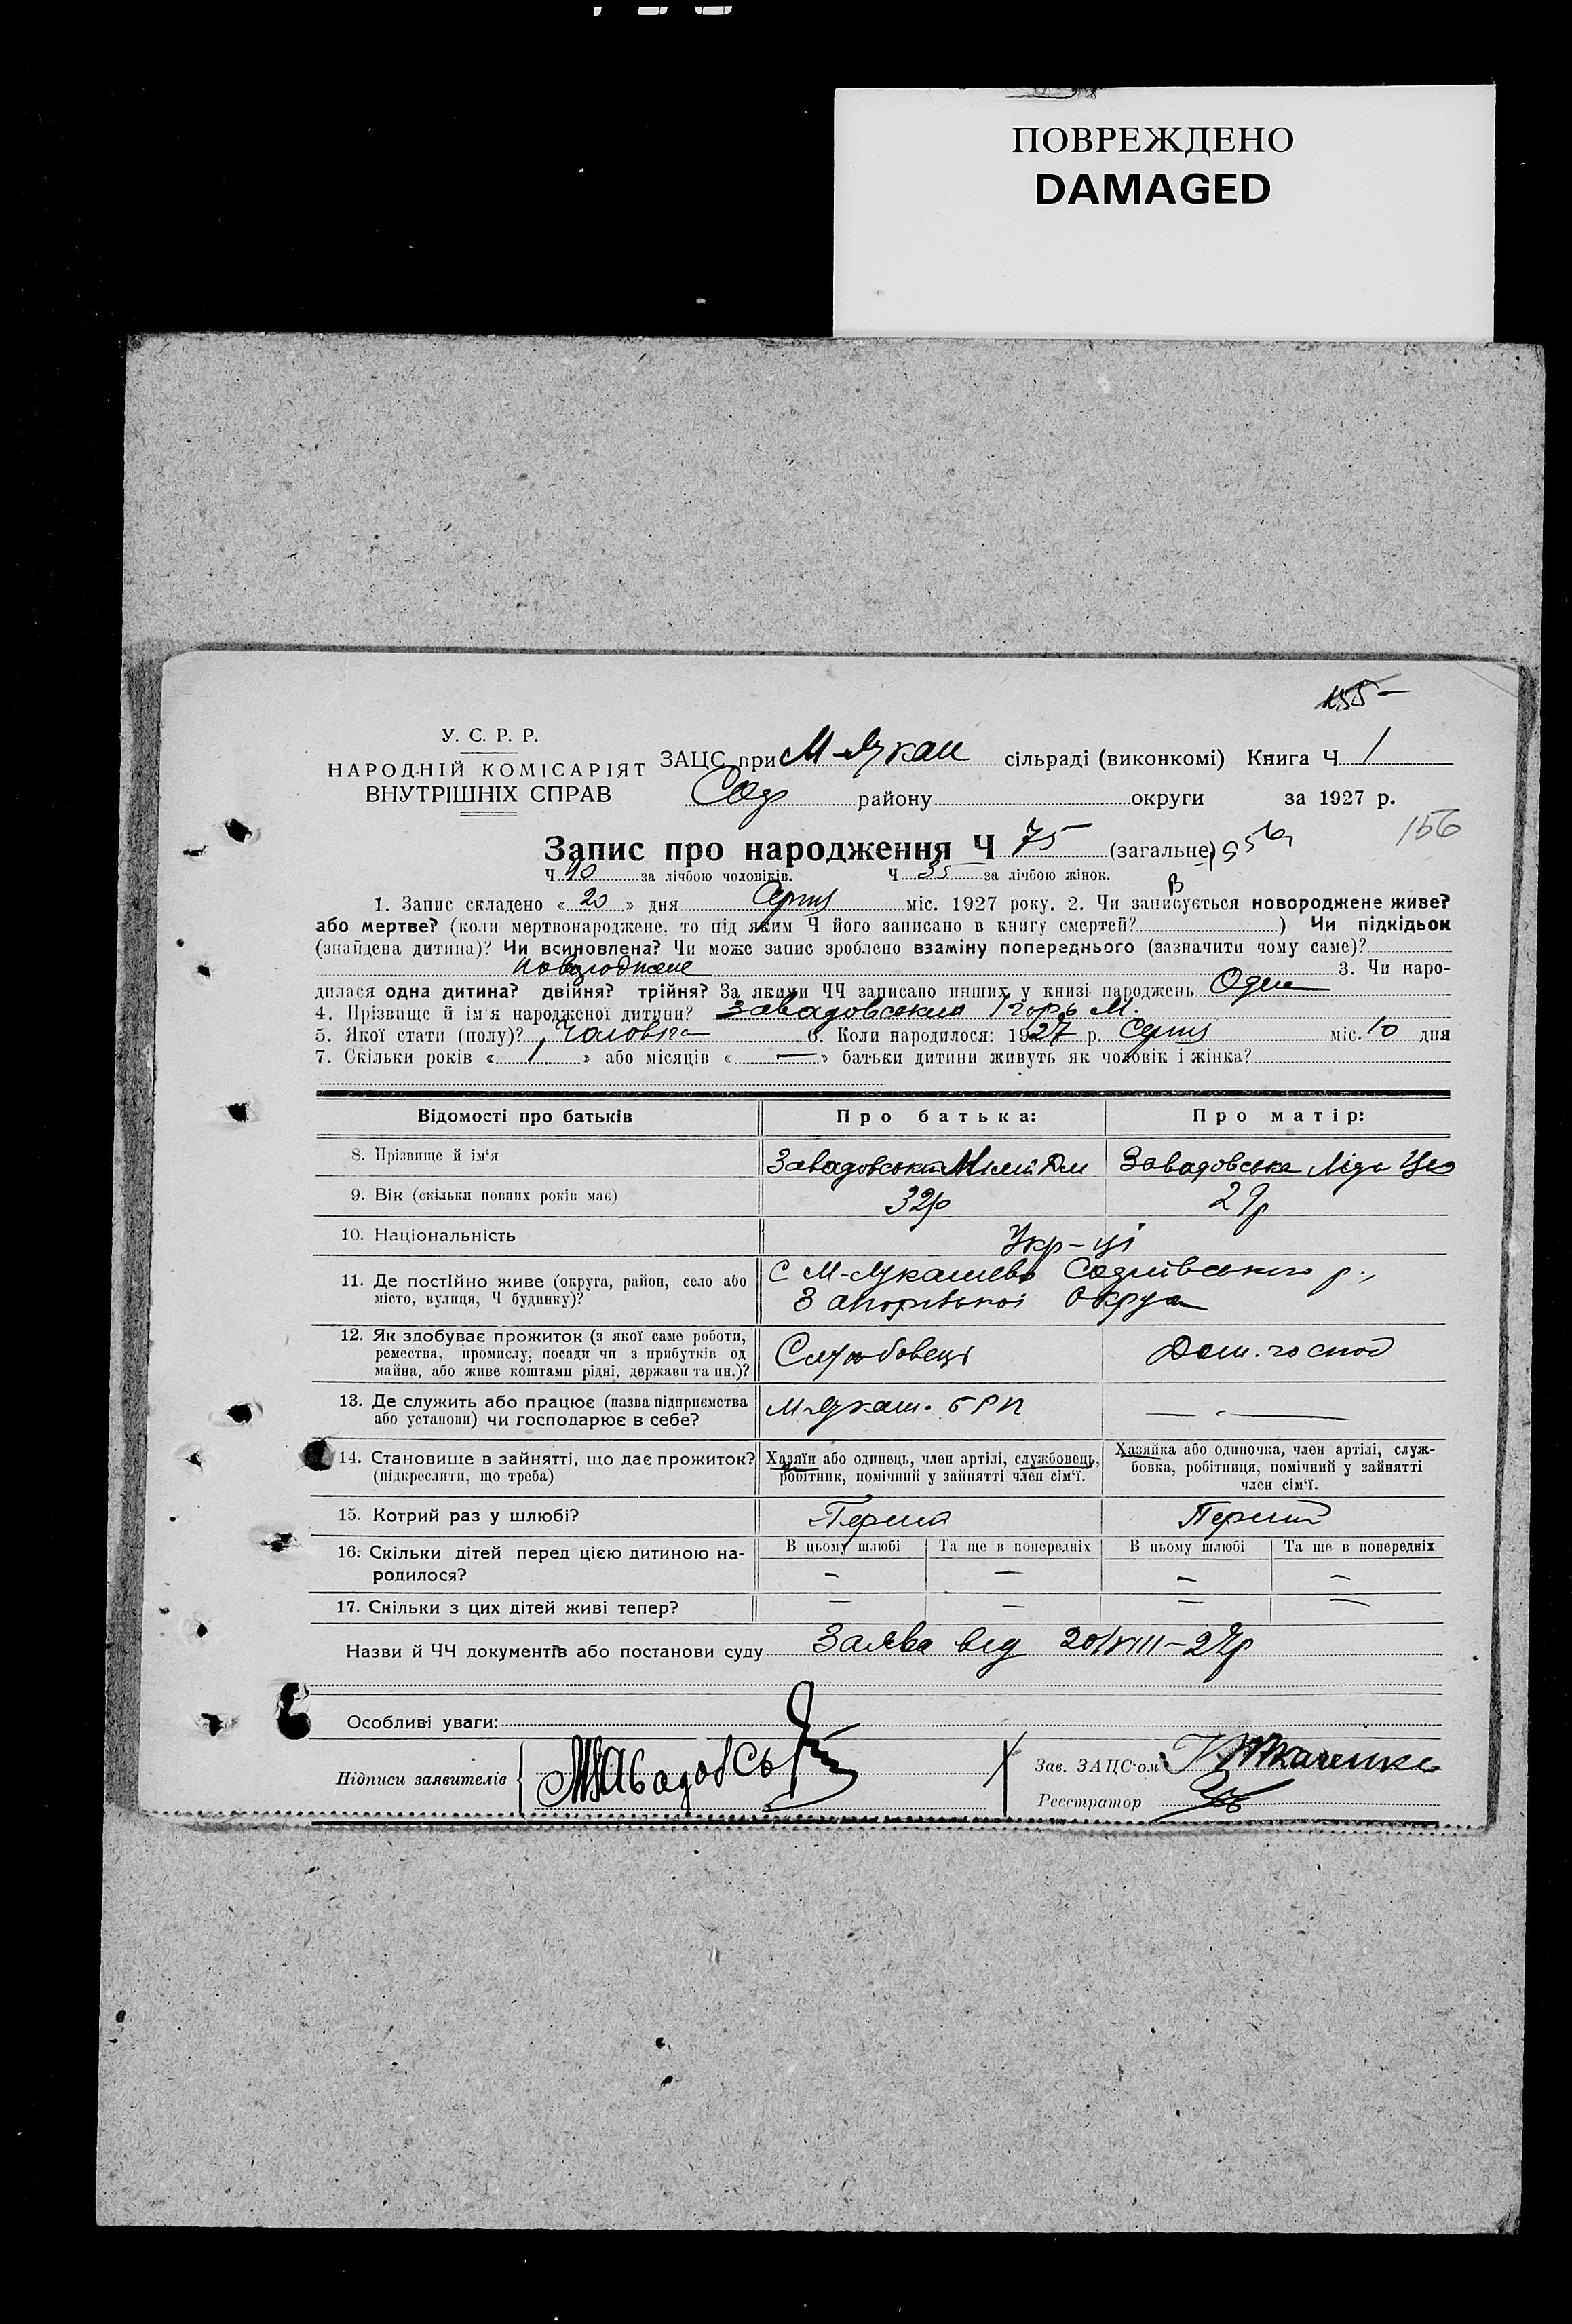 ПОВРЕЖДЕНО
DAMAGED
155-
У. С. Р. Р.
НАРОДНІЙ КОМІСАРІЯТ
ВНУТРІШНІХ СПРАВ
ЗАЦС при М-Лукаш сільраді (виконкомі) Книга Ч 1
району округи за 1927 р.
156
Запис про народження Ч 75 (загальне)
Ч 40 за лічбою чоловіків. Ч 35 за лічбою жінок.
1. Запис складено « 20 » дня Серпня міс. 1927 року. 2. Чи записується новороджене живе?
або мертве? (коли мертвонароджене, то під яким Ч його записано в книгу смертей? ) Чи підкідьок
(знайдена дитина)? Чи всиновлена? Чи може запис зроблено взаміну попереднього (зазначити чому саме)?
3. Чи наро-
дилася одна дитина? двійня? трійня? За якими ЧЧ записано инших у книзі народжень Один
4. Прізвище й ім'я народженої дитини? Завадовський Ігорь М.
5. Якої стати (полу)? Чоловіча 6. Коли народилося: 1927 р. Серпня міс. 10 дня
7. Скільки років « 1 » або місяців « — » батьки дитини живуть як чоловік і жінка?
Відомості про батьків Про батька: Про матір:
8. Прізвище й ім'я Завадовський Завадовська Ліда
9. Вік (скільки повних років має) 32р 29р
10. Національність Укр-ці
11. Де постійно живе (округа, район, село або
місто, вулиця, Ч будинку)?
с М-Лукашево Софиївського р.,
Запорізької Округи
12. Як здобуває прожиток (з якої саме роботи,
ремества, промислу, посади чи з прибутків од
майна, або живе коштами рідні, держави та ин.)?
Службовець Дом. господ
13. Де служить або працює (назва підприємства
або установи) чи господарює в себе?
М-Лукаш. — . —
14. Становище в зайнятті, що дає прожиток?
(підкреслити, що треба)
Хазяїн або одинець, член артілі, службовець,
робітник, помічний у зайнятті член сім'ї.
Хазяйка або одиночка, член артілі, служ-
бовка, робітниця, помічний у зайнятті
член сім'ї.
15. Котрий раз у шлюбі? Перший Перший
16. Скільки дітей перед цією дитиною на-
родилося?
В цьому шлюбі Та ще в попередніх В цьому шлюбі Та ще в попередніх
— — — —
17. Скільки з цих дітей живі тепер? — — — —
Назви й ЧЧ документів або постанови суду Заява від 20/VIII-27р
Особливі уваги:
Підписи заявителів МЗавадовський
Зав. ЗАЦС'ом Ткаченко
Реєстратор